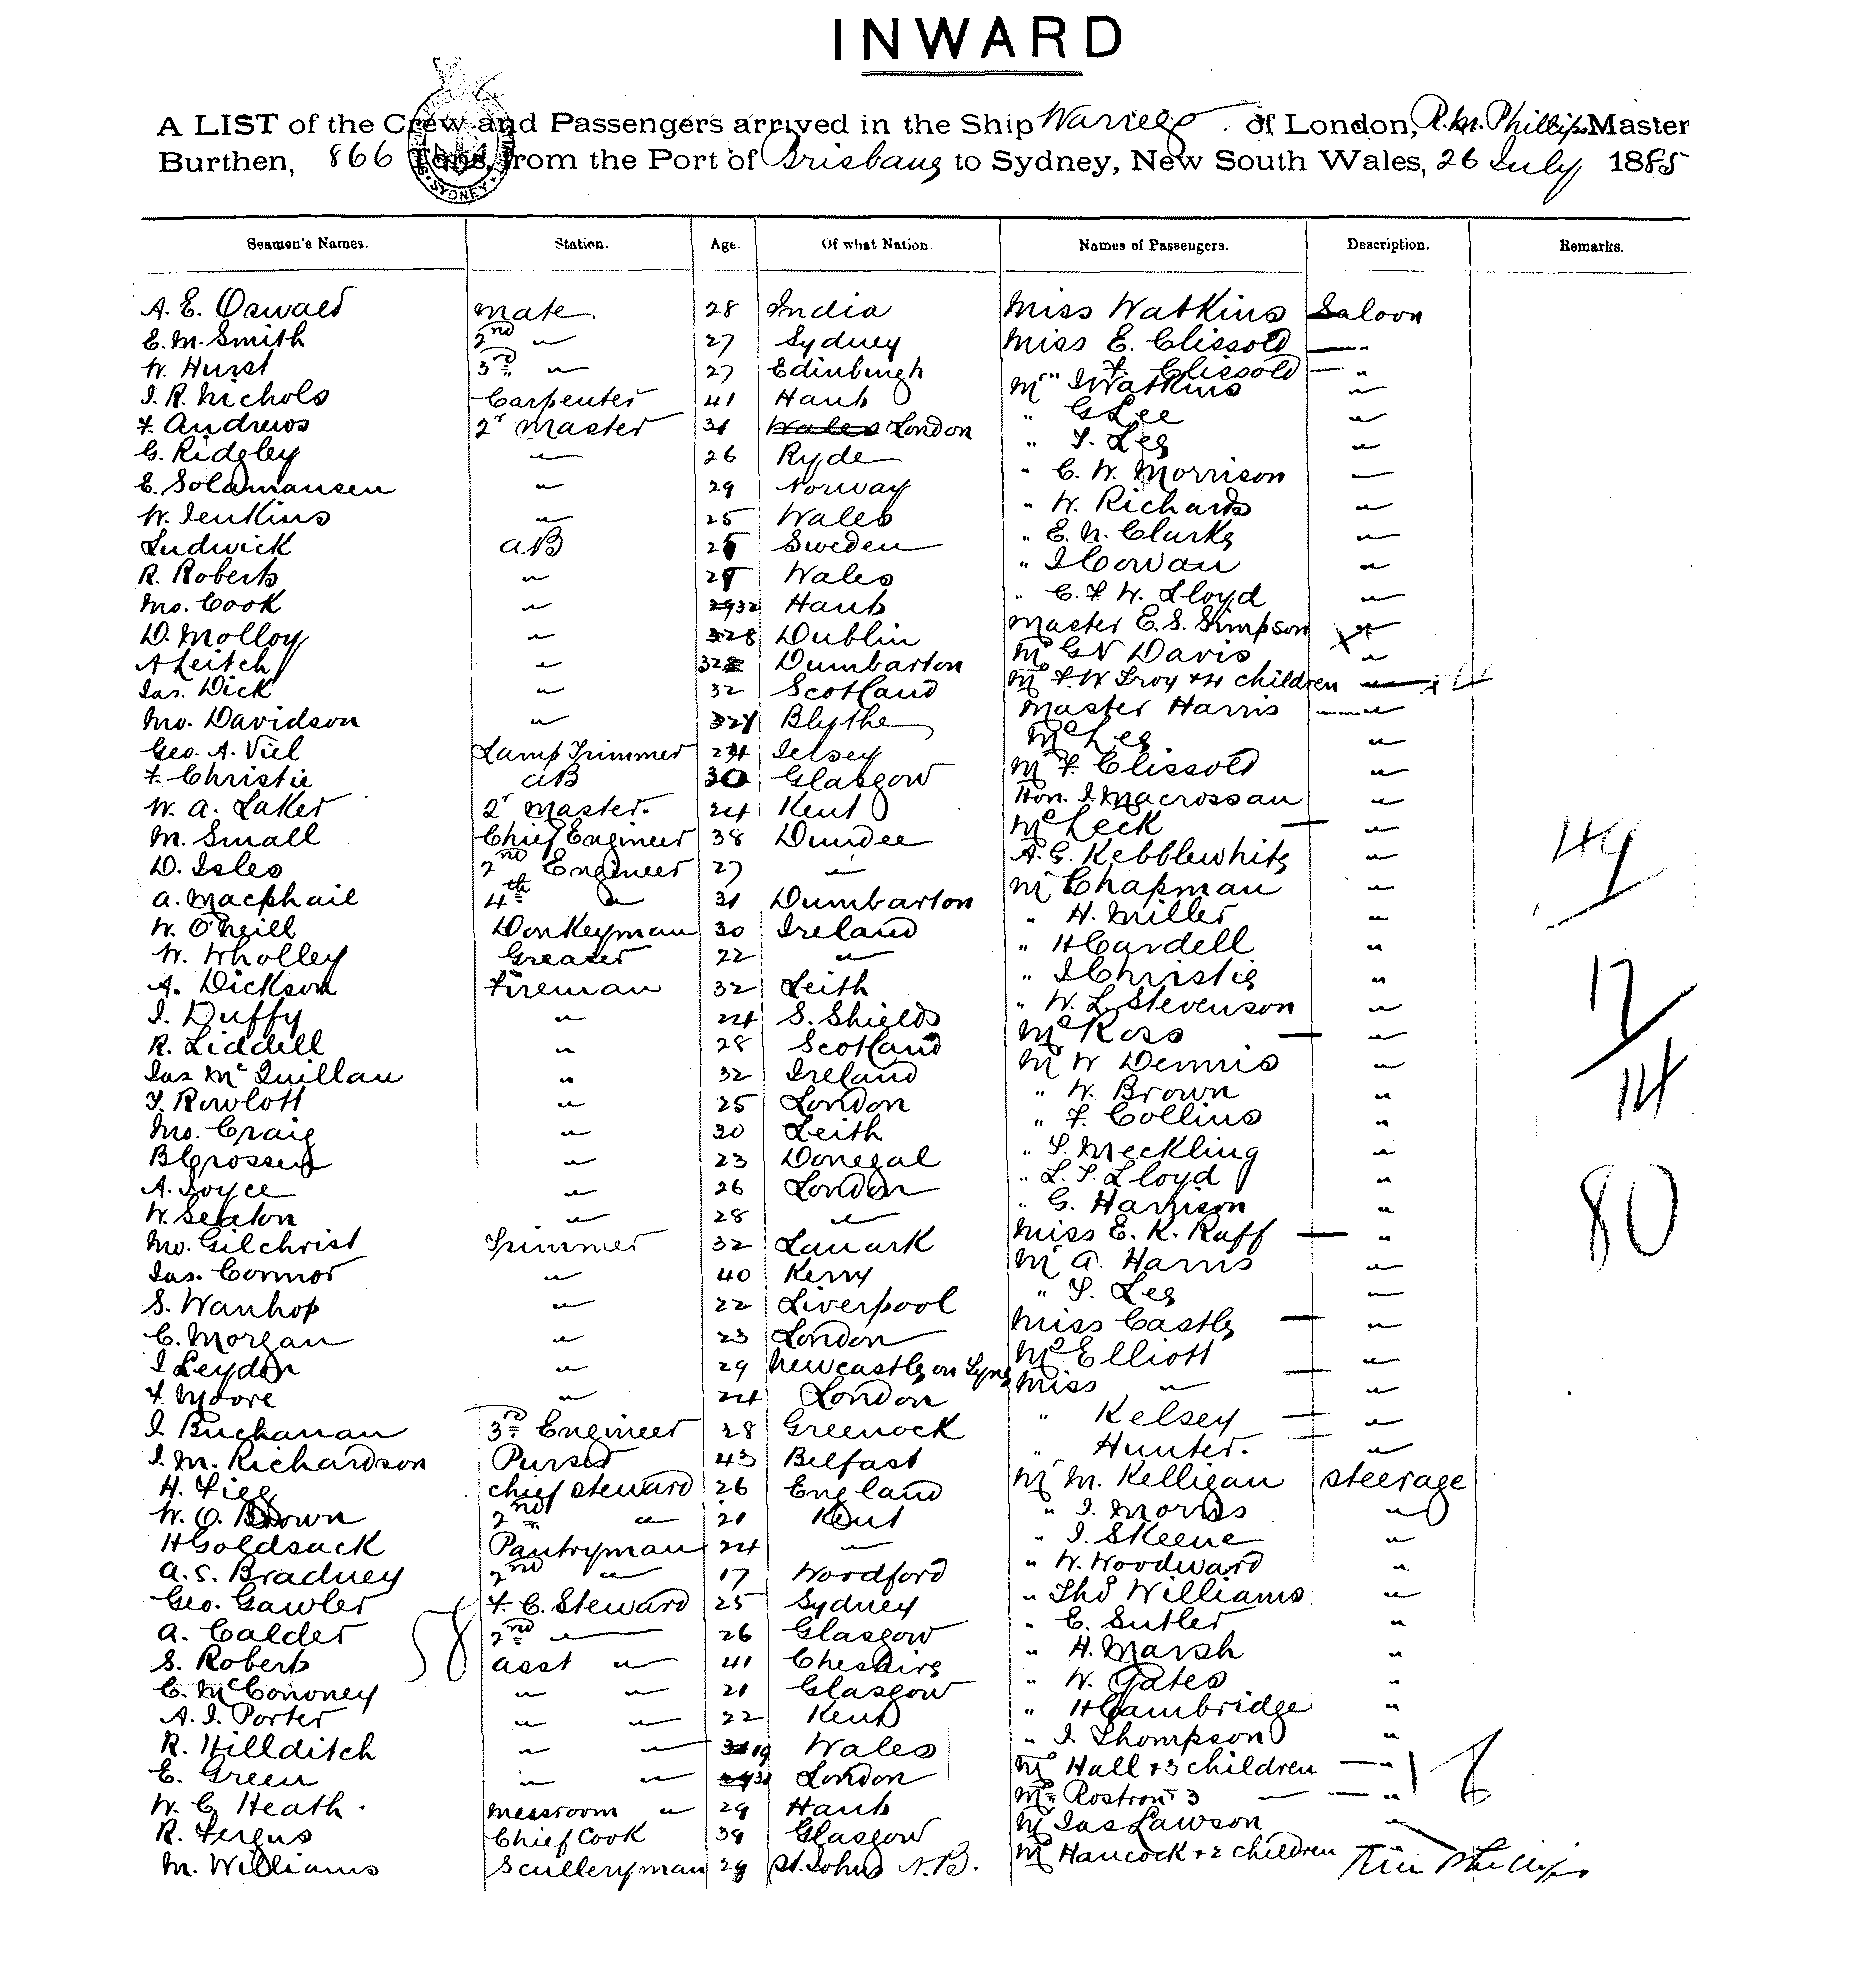 INWARD
A LIST of the Crew and Passengers arrived in the Ship Warrego of London, R. M. Phillips Master
Burthen, 866 Tons, from the Port of Brisbane to Sydney, New South Wales, 26 July 1885
SYDNEY
Seamen's Names. Station. Age. Of what Nation. Names of Passengers. Description. Remarks.
A. E. Oswald mate 28 India Miss Watkins Saloon
E. M. Smith 2nd " 27 Sydney Miss E. Clissold "
W. Hurst 3rd " 27 Edinburgh " F. Clissold "
J. R. Nichols Carpenter 41 Hants Mr J Watkins "
F. Andrews 2r Master 31 Wales London " G Lee "
G. Ridgley " 26 Ryde " S. Lee "
E. Solamansen " 29 Norway " C. W. Morrison "
W. Jenkins " 25 Wales " W. Richards "
Ludwick AB Sweden " E. N. Clarke "
R. Roberts " Wales " J Cowan "
Jno. Cook " 32 Hants " C. F. W. Lloyd "
D. Molloy " 28 Dublin Master E. S. Simpson "
A Leitch " 32 Dumbarton G N Davis "
Jas. Dick " 32 Scotland F. W Troy + 4 children " 4
Jno. Davidson " Blythe Master Harris "
Geo. A. Viel Lamp Trimmer 24 Jersey Lee "
F. Christie AB 30 Glasgow Mr F. Clissold "
W. A. Laker 2r Master. 24 Kent Hon. J. Macrossan "
M. Small Chief Engineer 38 Dundee Leck "
D. Isles 2nd Engineer 27 " A. G. Kebblewhite "
A. Macphail 4th " 31 Dumbarton Mr Chapman "
W. O'Neill Donkeyman 30 Ireland " H. Miller "
W. Wholley Greaser 22 " " H Cardell "
A. Dickson Fireman 32 Leith " J Christie "
J. Duffy " 24 S. Shields " W. L. Stevenson "
R. Liddell " 28 Scotland Ross "
Jas McQuillan " 32 Ireland Mr W Dennis "
T. Rowlott " 25 London " W. Brown "
Jno. Craig " 30 Leith " F. Collins "
B Crossen " 23 Donegal " S. Meckling "
A. Joyce " 26 London " L. S. Lloyd "
W. Seaton " 28 " " G. Harrison "
Jno. Gilchrist Trimmer 32 Lanark Miss E. K. Raff "
Jas. Connor " 40 Kerry Mr A. Harris "
S. Wanhop " 22 Liverpool " S. Lee "
C. Morgan " 23 London Miss Castle "
J Leydon " 29 Newcastle on Tyne Elliott "
F. Moore " 24 London Miss " "
J. Buchanan 3rd Engineer 28 Greenock " Kelsey "
J. M. Richardson Purser 43 Belfast " Hunter. "
H. Figg chief steward 26 England Mr M. Kelligan steerage
W. O. Brown 2nd " 21 Kent " J. Morris "
H Goldsack Pantryman 24 " " J. Skeene "
A. S. Bradney 2nd " 17 Woodford " W. Woodward "
Geo. Gawler F. C. Steward 25 Sydney " Thos Williams "
A. Calder 2nd " 26 Glasgow " E. Sutler "
S. Roberts asst " 41 Cheshire " H. Marsh "
C. McCononey " " 21 Glasgow " W. Gates "
A. J. Porter " " 22 Kent " H Cambridge "
R. Hillditch " " 19 Wales " J. Thompson "
E. Green " " London Hall + 3 children "
W. C Heath. messroom " 29 Hants Rostron 3 " "
R. Fergus Chief Cook 39 Glasgow Mr Jas Lawson "
M. Williams Sculleryman 29 St. Johns N.B. Hancock + 2 children "
58
49
17
14
80